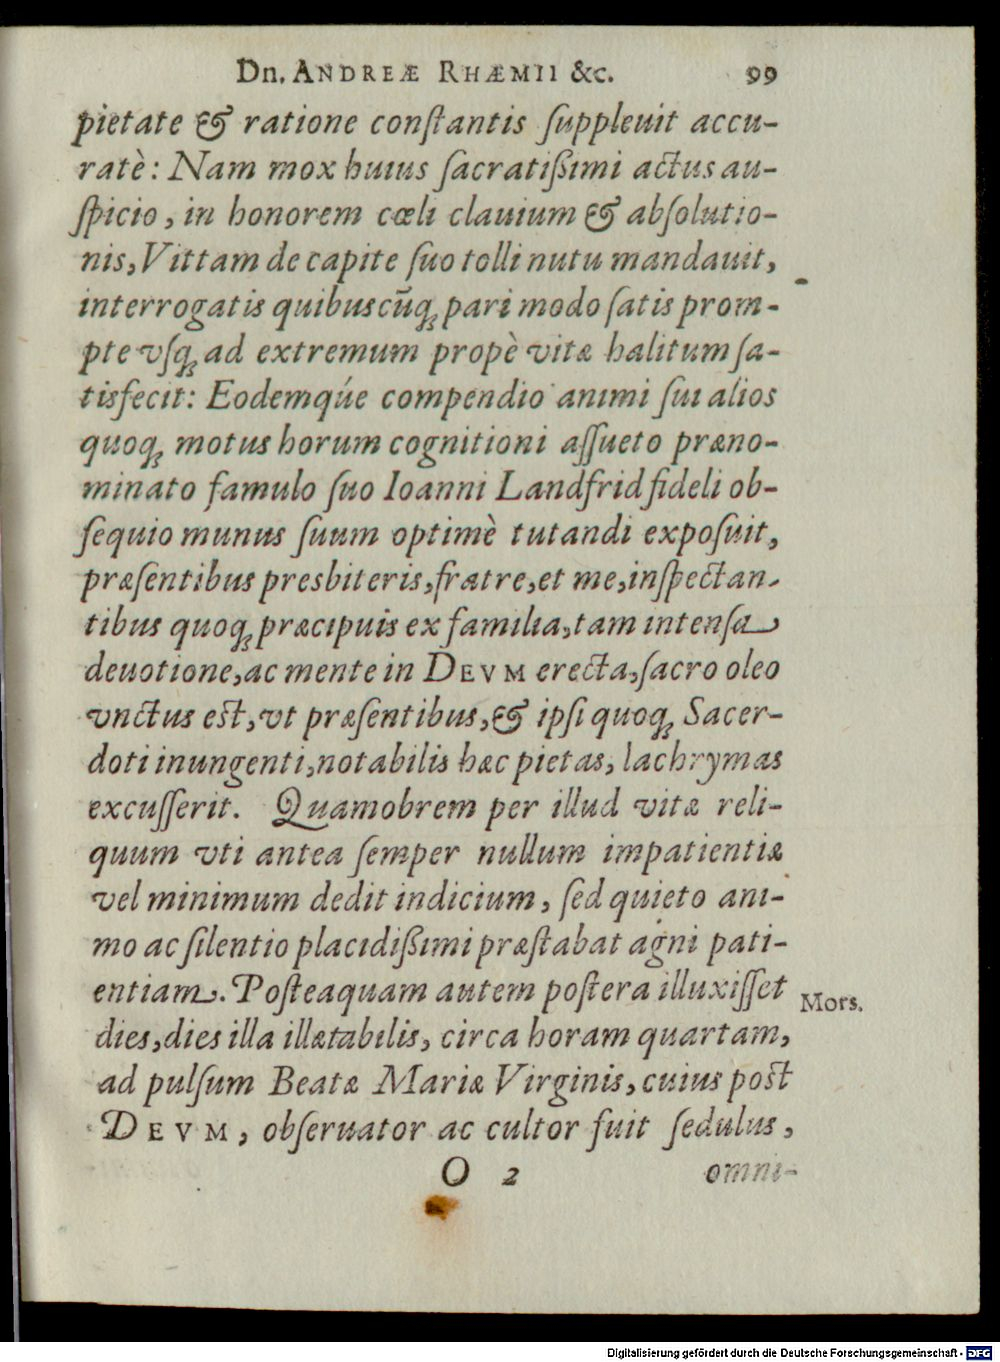 Dn. ANDREÆ RHÆMII &c. 99
pietate & ratione conſtantis ſuppleuit accu-
ratè: Nam mox huius ſacratißimi actus au-
ſpicio, in honorem cœli clauium & abſolutio-
nis, Vittam de capite ſuo tolli nutu mandauit,
interrogatis quibuscũq; pari modo ſatis prom-
pte vſq; ad extremum propè vitæ halitum ſa-
tisfecit: Eodemqúe compendio animi ſui alios
quoq; motus horum cognitioni aſſueto præno-
minato famulo ſuo Ioanni Landfrid fideli ob-
ſequio munus ſuum optimè tutandi expoſuit,
præſentibus presbiteris, fratre, et me, inſpectan-
tibus quoq; præcipuis ex familia, tam intenſa
deuotione, ac mente in DEVM erecta, ſacro oleo
vnctus est, vt præſentibus, & ipſi quoq; Sacer-
doti inungenti, notabilis hæc pietas, lachrymas
excuſſerit. Quamobrem per illud vitæ reli-
quum vti antea ſemper nullum impatientiæ
vel minimum dedit indicium, ſed quieto ani-
mo ac ſilentio placidißimi præſtabat agni pati-
entiam. Poſteaquam autem poſtera illuxiſſet
Mors.
dies, dies illa illætabilis, circa horam quartam,
ad pulſum Beatæ Mariæ Virginis, cuius post
DEVM, obſeruator ac cultor fuit ſedulus,
O 2 omni-
Digitalisierung gefördert durch die Deutsche Forschungsgemeinschaft - DFG